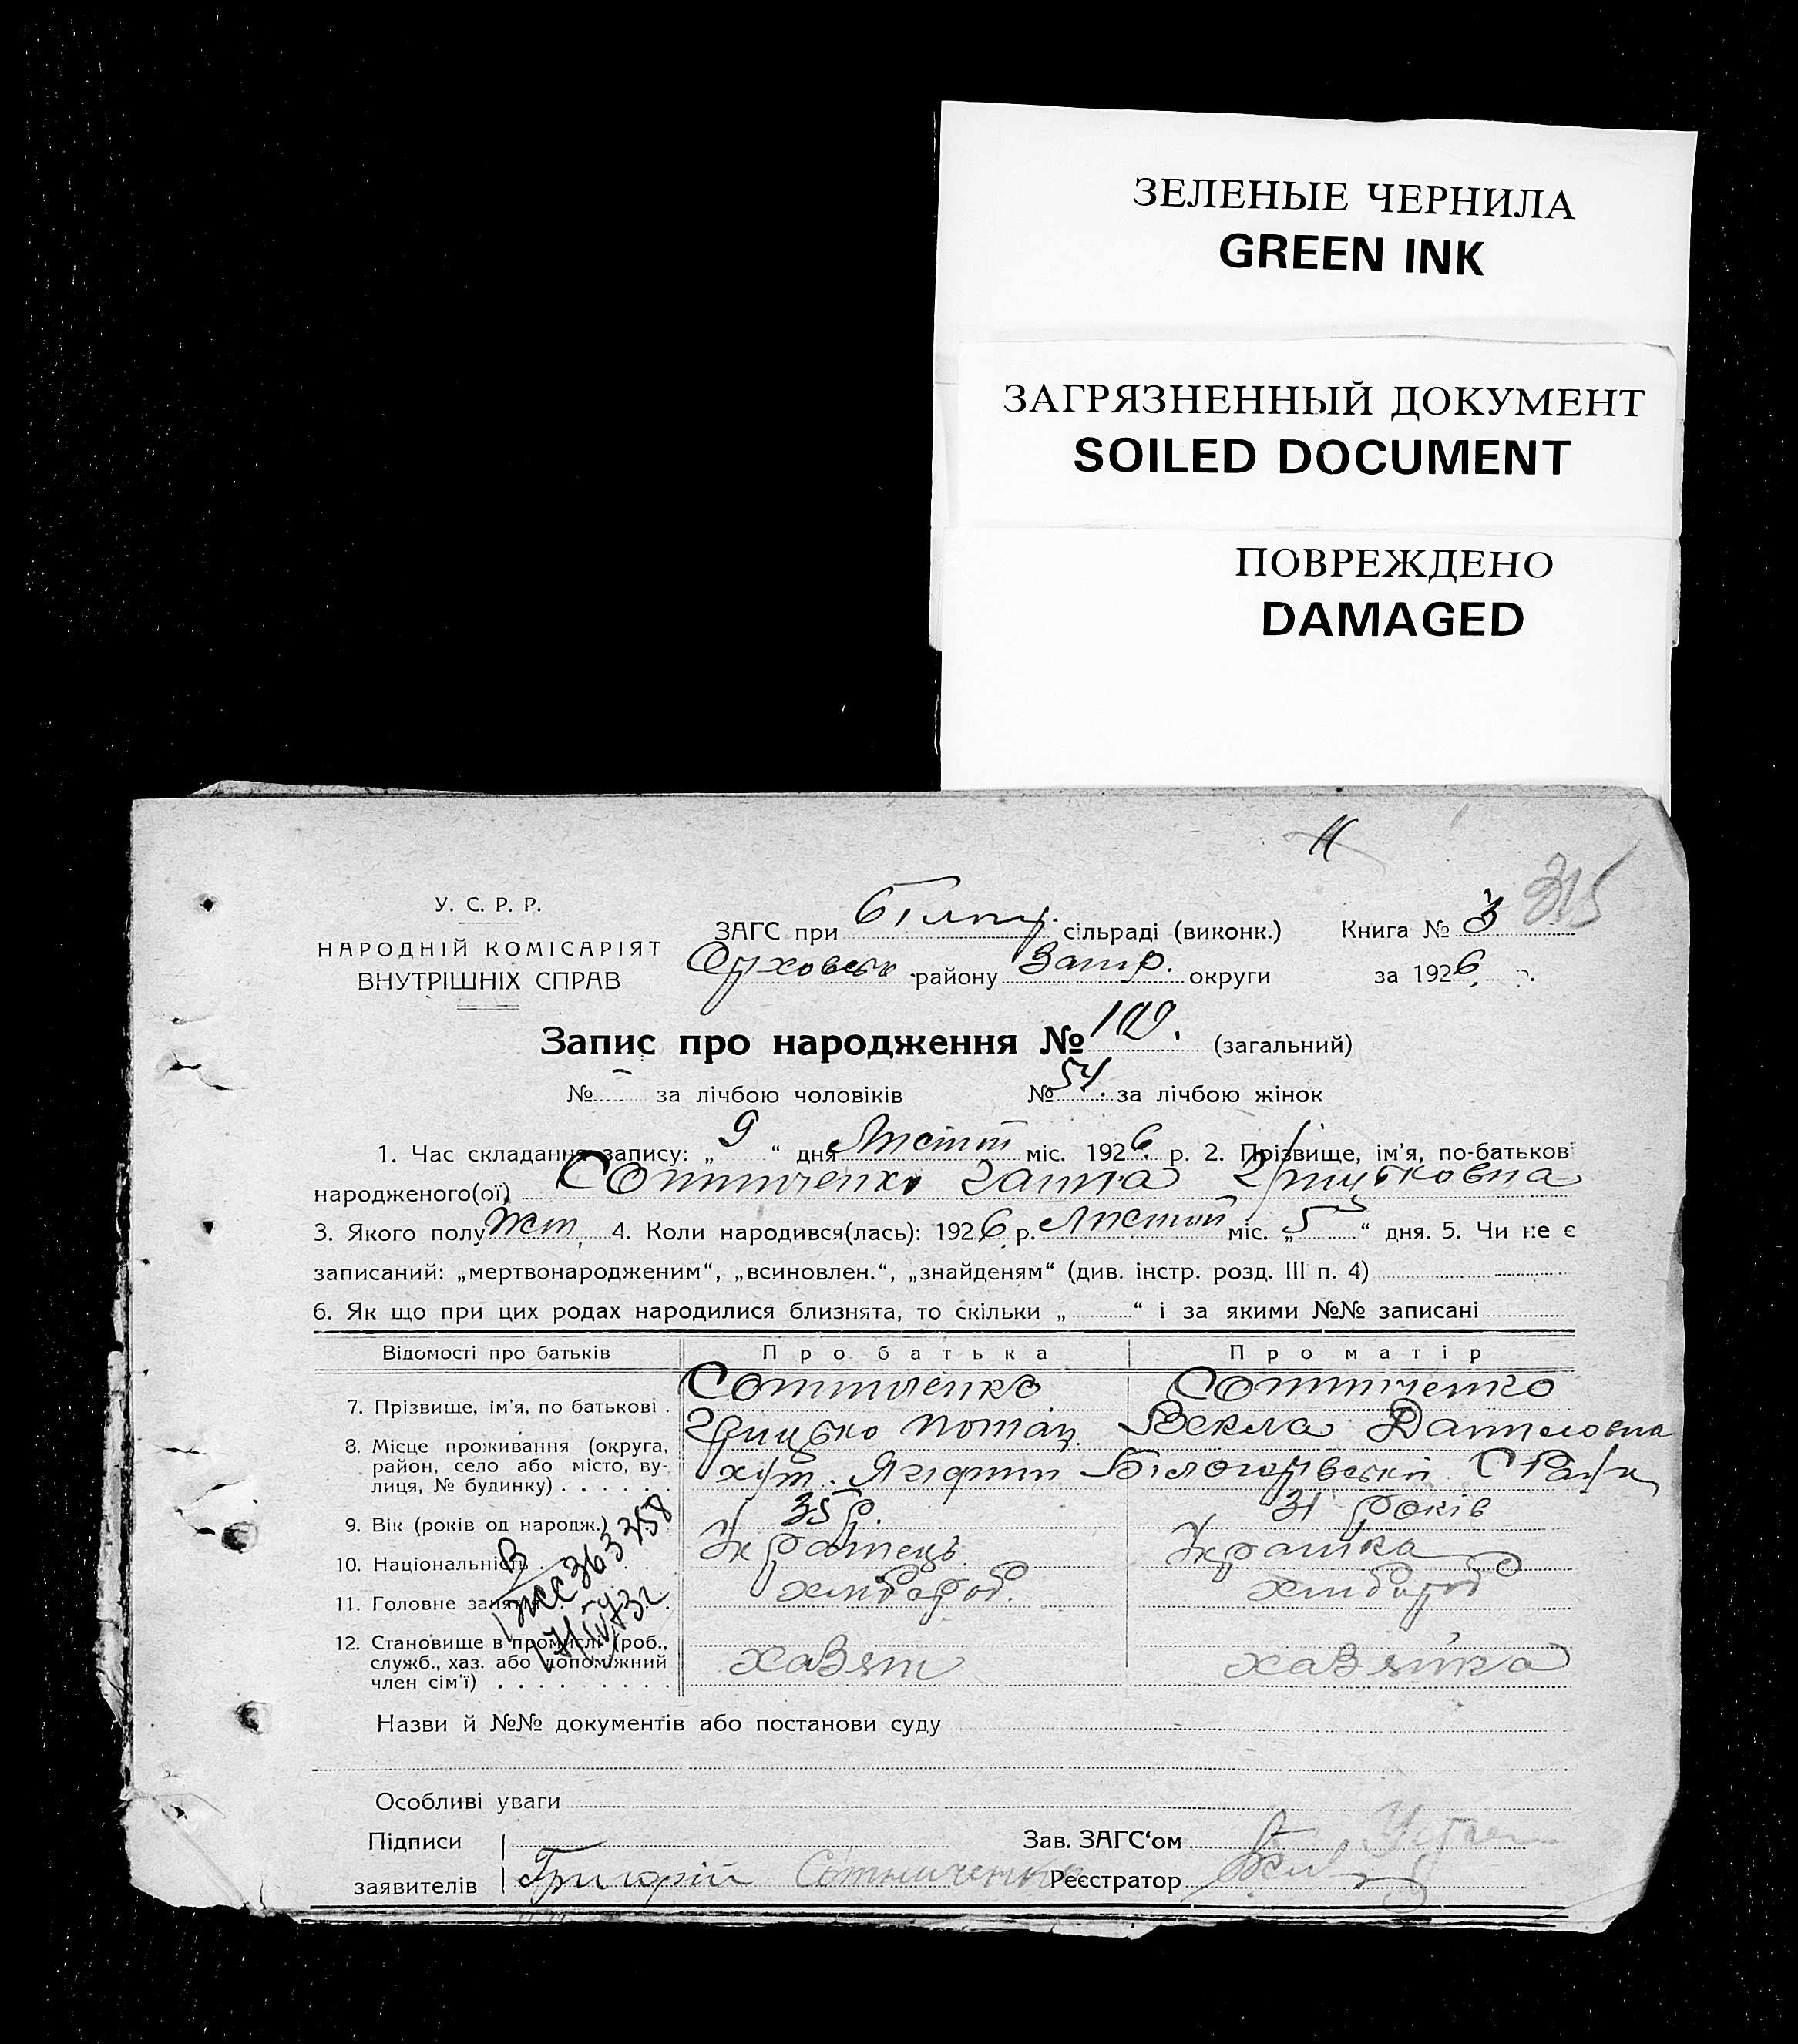 ЗЕЛЕНЫЕ ЧЕРНИЛА
GREEN INK
ЗАГРЯЗНЕННЫЙ ДОКУМЕНТ
SOILED DOCUMENT
ПОВРЕЖДЕНО
DAMAGED
315
У. С. Р. Р.
НАРОДНІЙ КОМІСАРІЯТ
ВНУТРІШНІХ СПРАВ
ЗАГС при сільраді (виконк.) Книга № 3
району Запор. округи за 1926 р.
Запис про народження № (загальний)
№ - за лічбою чоловіків № 54. за лічбою жінок
1. Час складання запису: „9“ дня Листоп міс. 1926 р. 2. Прізвище, ім'я, по-батькові
народженого(ої) Сотниченко Ганна Грицьковна
3. Якого полу Жін. 4. Коли народився(лась): 1926 р. Листоп міс. „5“ дня. 5. Чи не є
записаний: „мертвонародженим“, „всиновлен.“, „знайденям“ (див. інстр. розд. III п. 4)
6. Як що при цих родах народилися близнята, то скільки „ “ і за якими №№ записані
Відомості про батьків Про батька Про матір
7. Прізвище, ім'я, по батькові . Сотниченко Сотниченко
Грицько Векла Даниловна
8. Місце проживання (округа, район, село або місто, вулиця, № будинку) . . . . . хут. Білогорівської С Ради
9. Вік (років од народж.) 35 р. 31 років
10. Національність . Українець Українка
11. Головне заняття хлібороб. хлібороб
12. Становище в промислі (роб., служб., хаз. або допоміжний член сім'ї) . . . . . . . . . хазяїн хазяйка
363258
Назви й №№ документів або постанови суду
Особливі уваги
Підписи Зав. ЗАГС'ом
заявителів Григорій Сотниченко Реєстратор